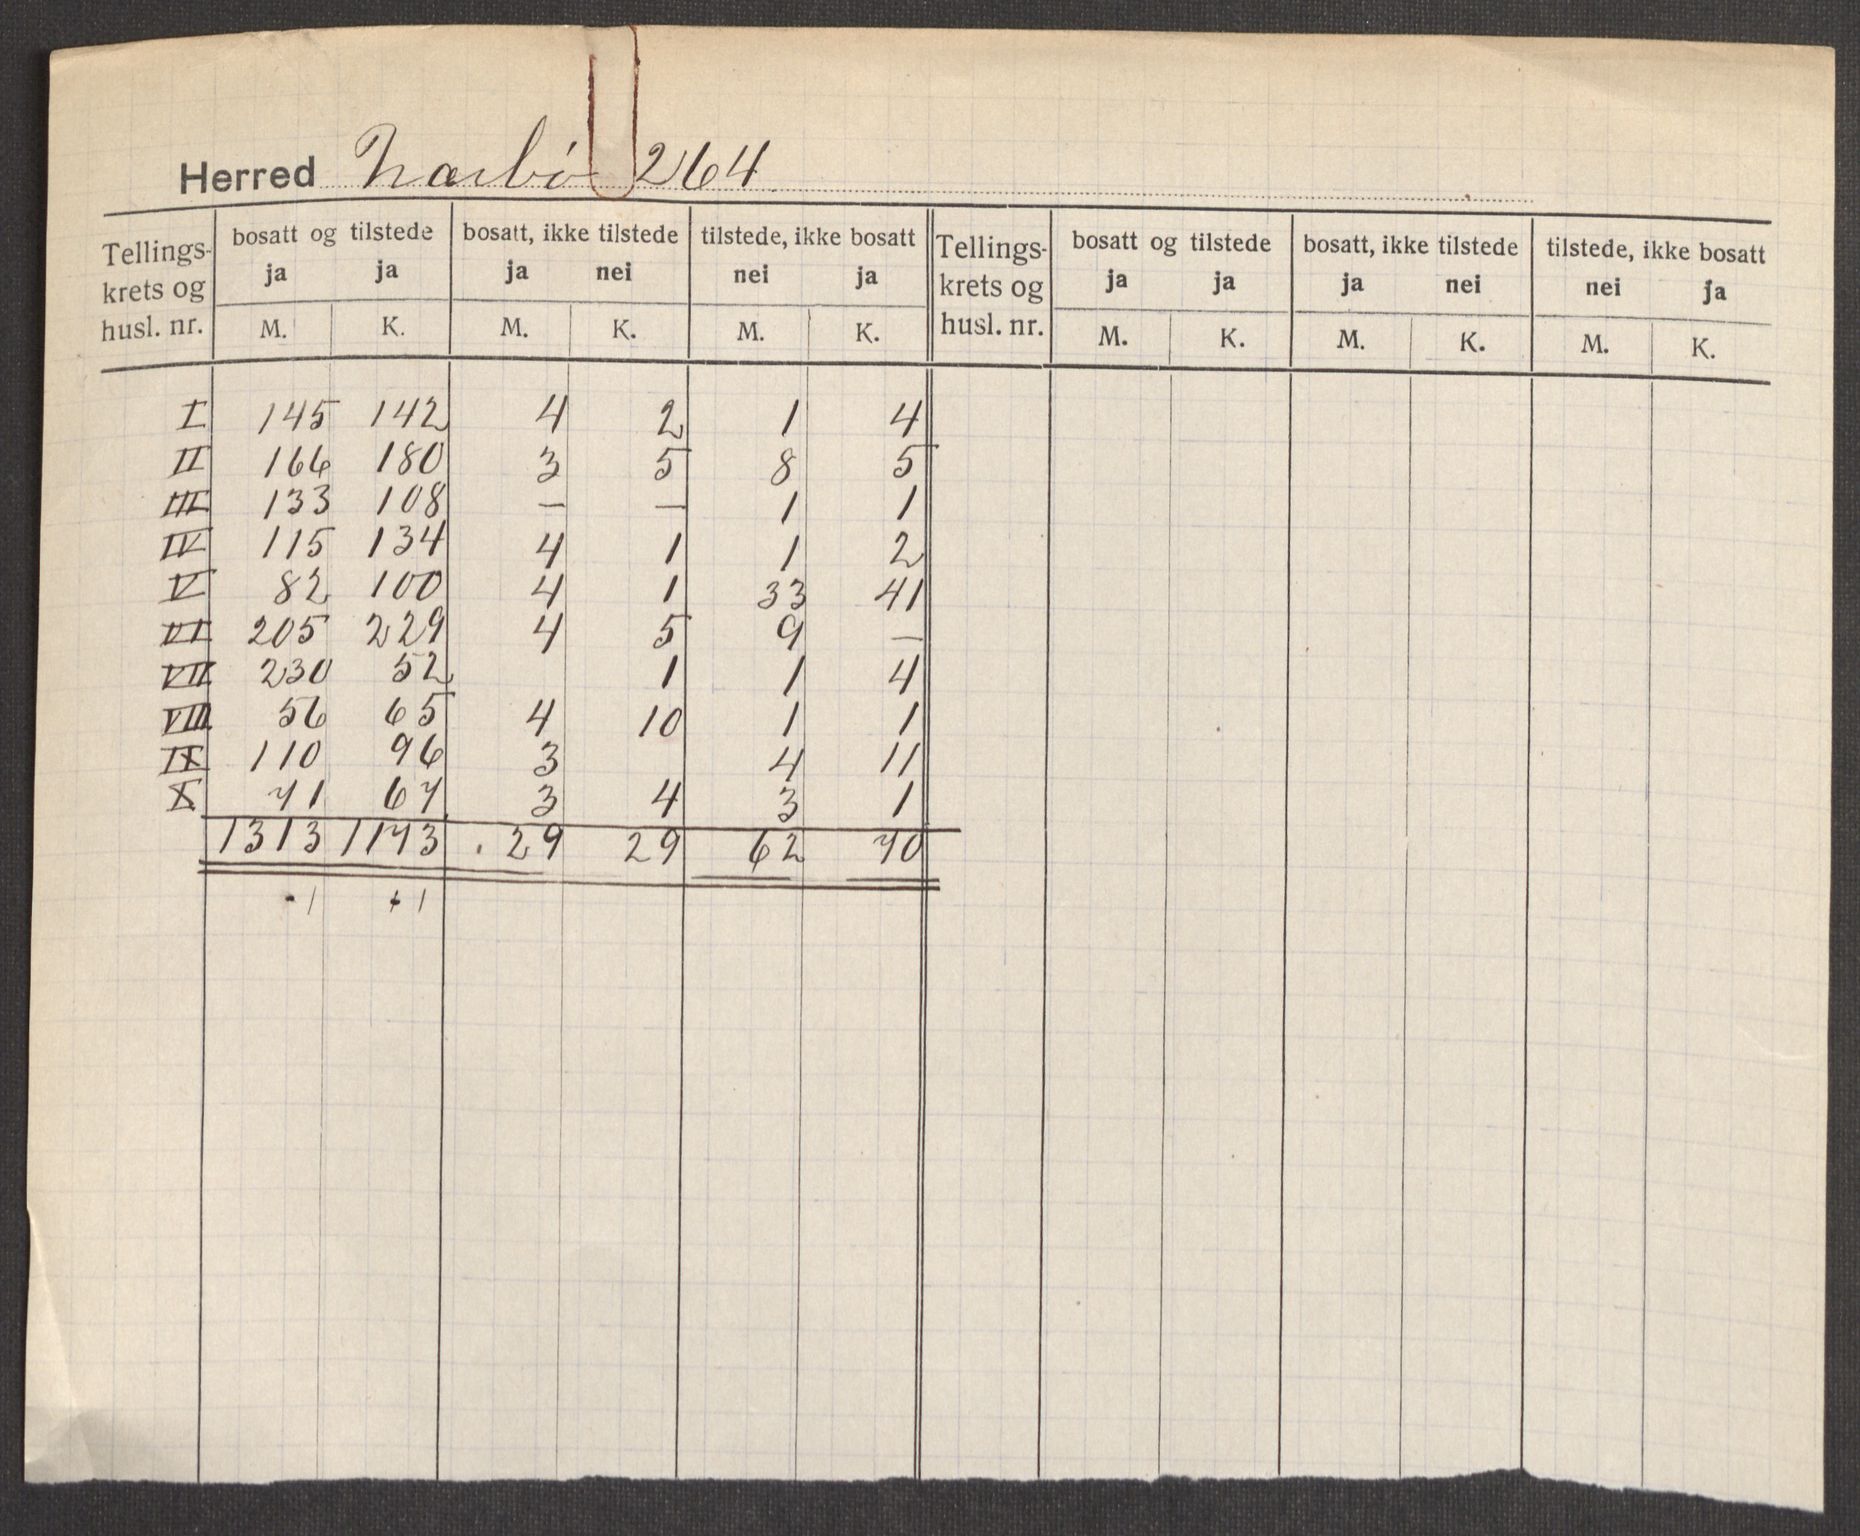 Herred Nærbö 264
Tellings- krets og husl. nr. bosatt og tilstede bosatt, ikke tilstede tilstede, ikke bosatt Tellings- krets og husl. nr. bosatt og tilstede bosatt, ikke tilstede tilstede, ikke bosatt
ja ja ja nei nei ja ja ja ja nei nei ja
M. K. M. K. M. K. M. K. M. K. M. K.
I 145 142 4 2 1 4
II 166 180 3 5 8 5
III 133 108 — — 1 1
IV 115 134 4 1 1 2
V 82 100 4 1 33 41
VI 205 229 4 5 9 —
VII 230 52 1 1 4
VIII 56 65 4 10 1 1
IX 110 96 3 4 11
X 71 67 3 4 3 1
1313 1173 . 29 29 62 70
-1 +1